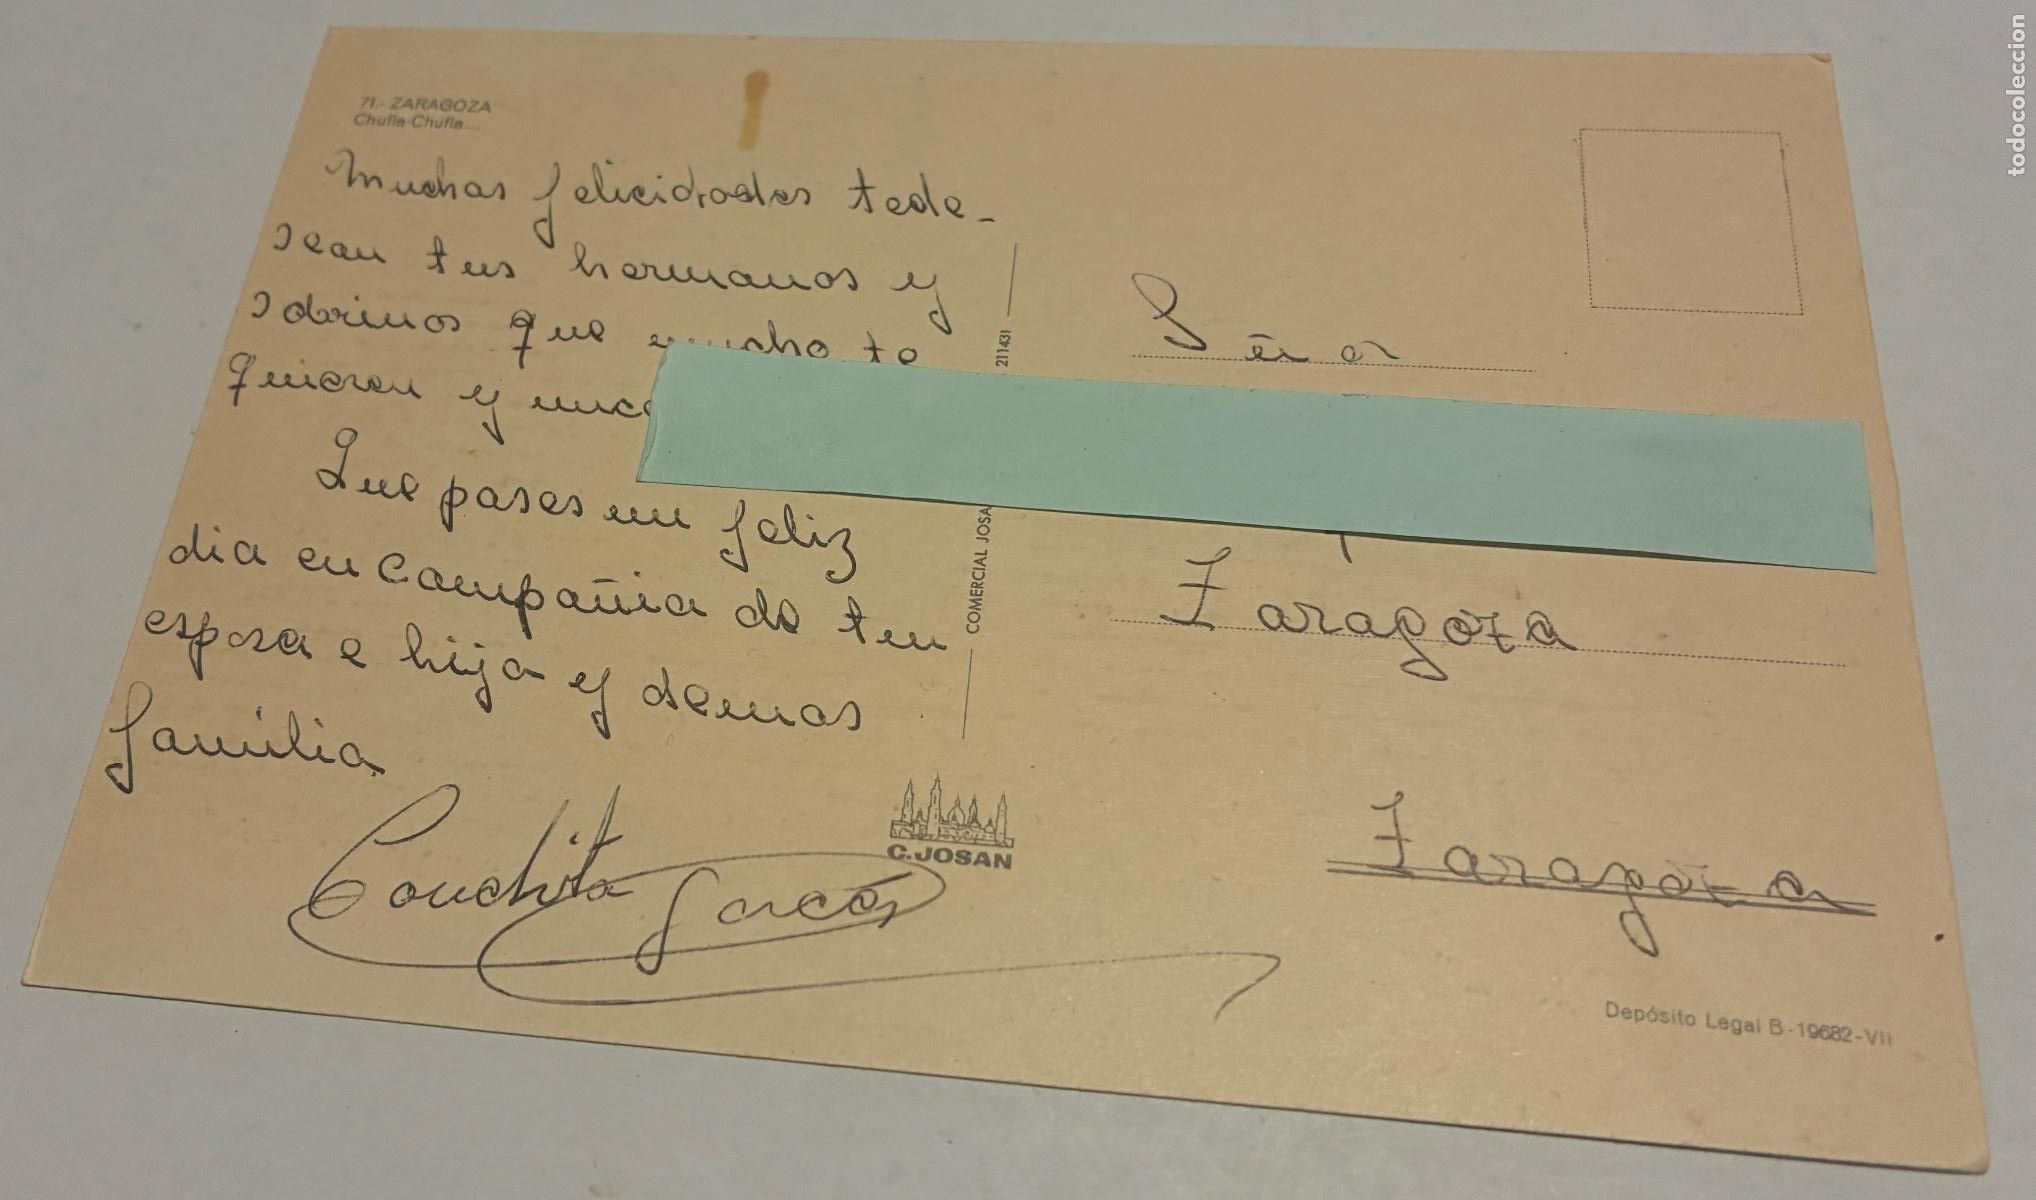 71.- ZARAGOZA
Chufla-Chufla...
Muchas felicidades tede-
sean tus hermanos y
sobrinos que mucho te
quieren y
Que pases un feliz
dia en Compañia de tu
esposa e hija y demas
familia
Conchita Garcés
C.JOSAN
COMERCIAL JOSA
211431
Señor
Zaragoza
Zaragoza
Depósito Legal B-19682-VII
todocoleccion